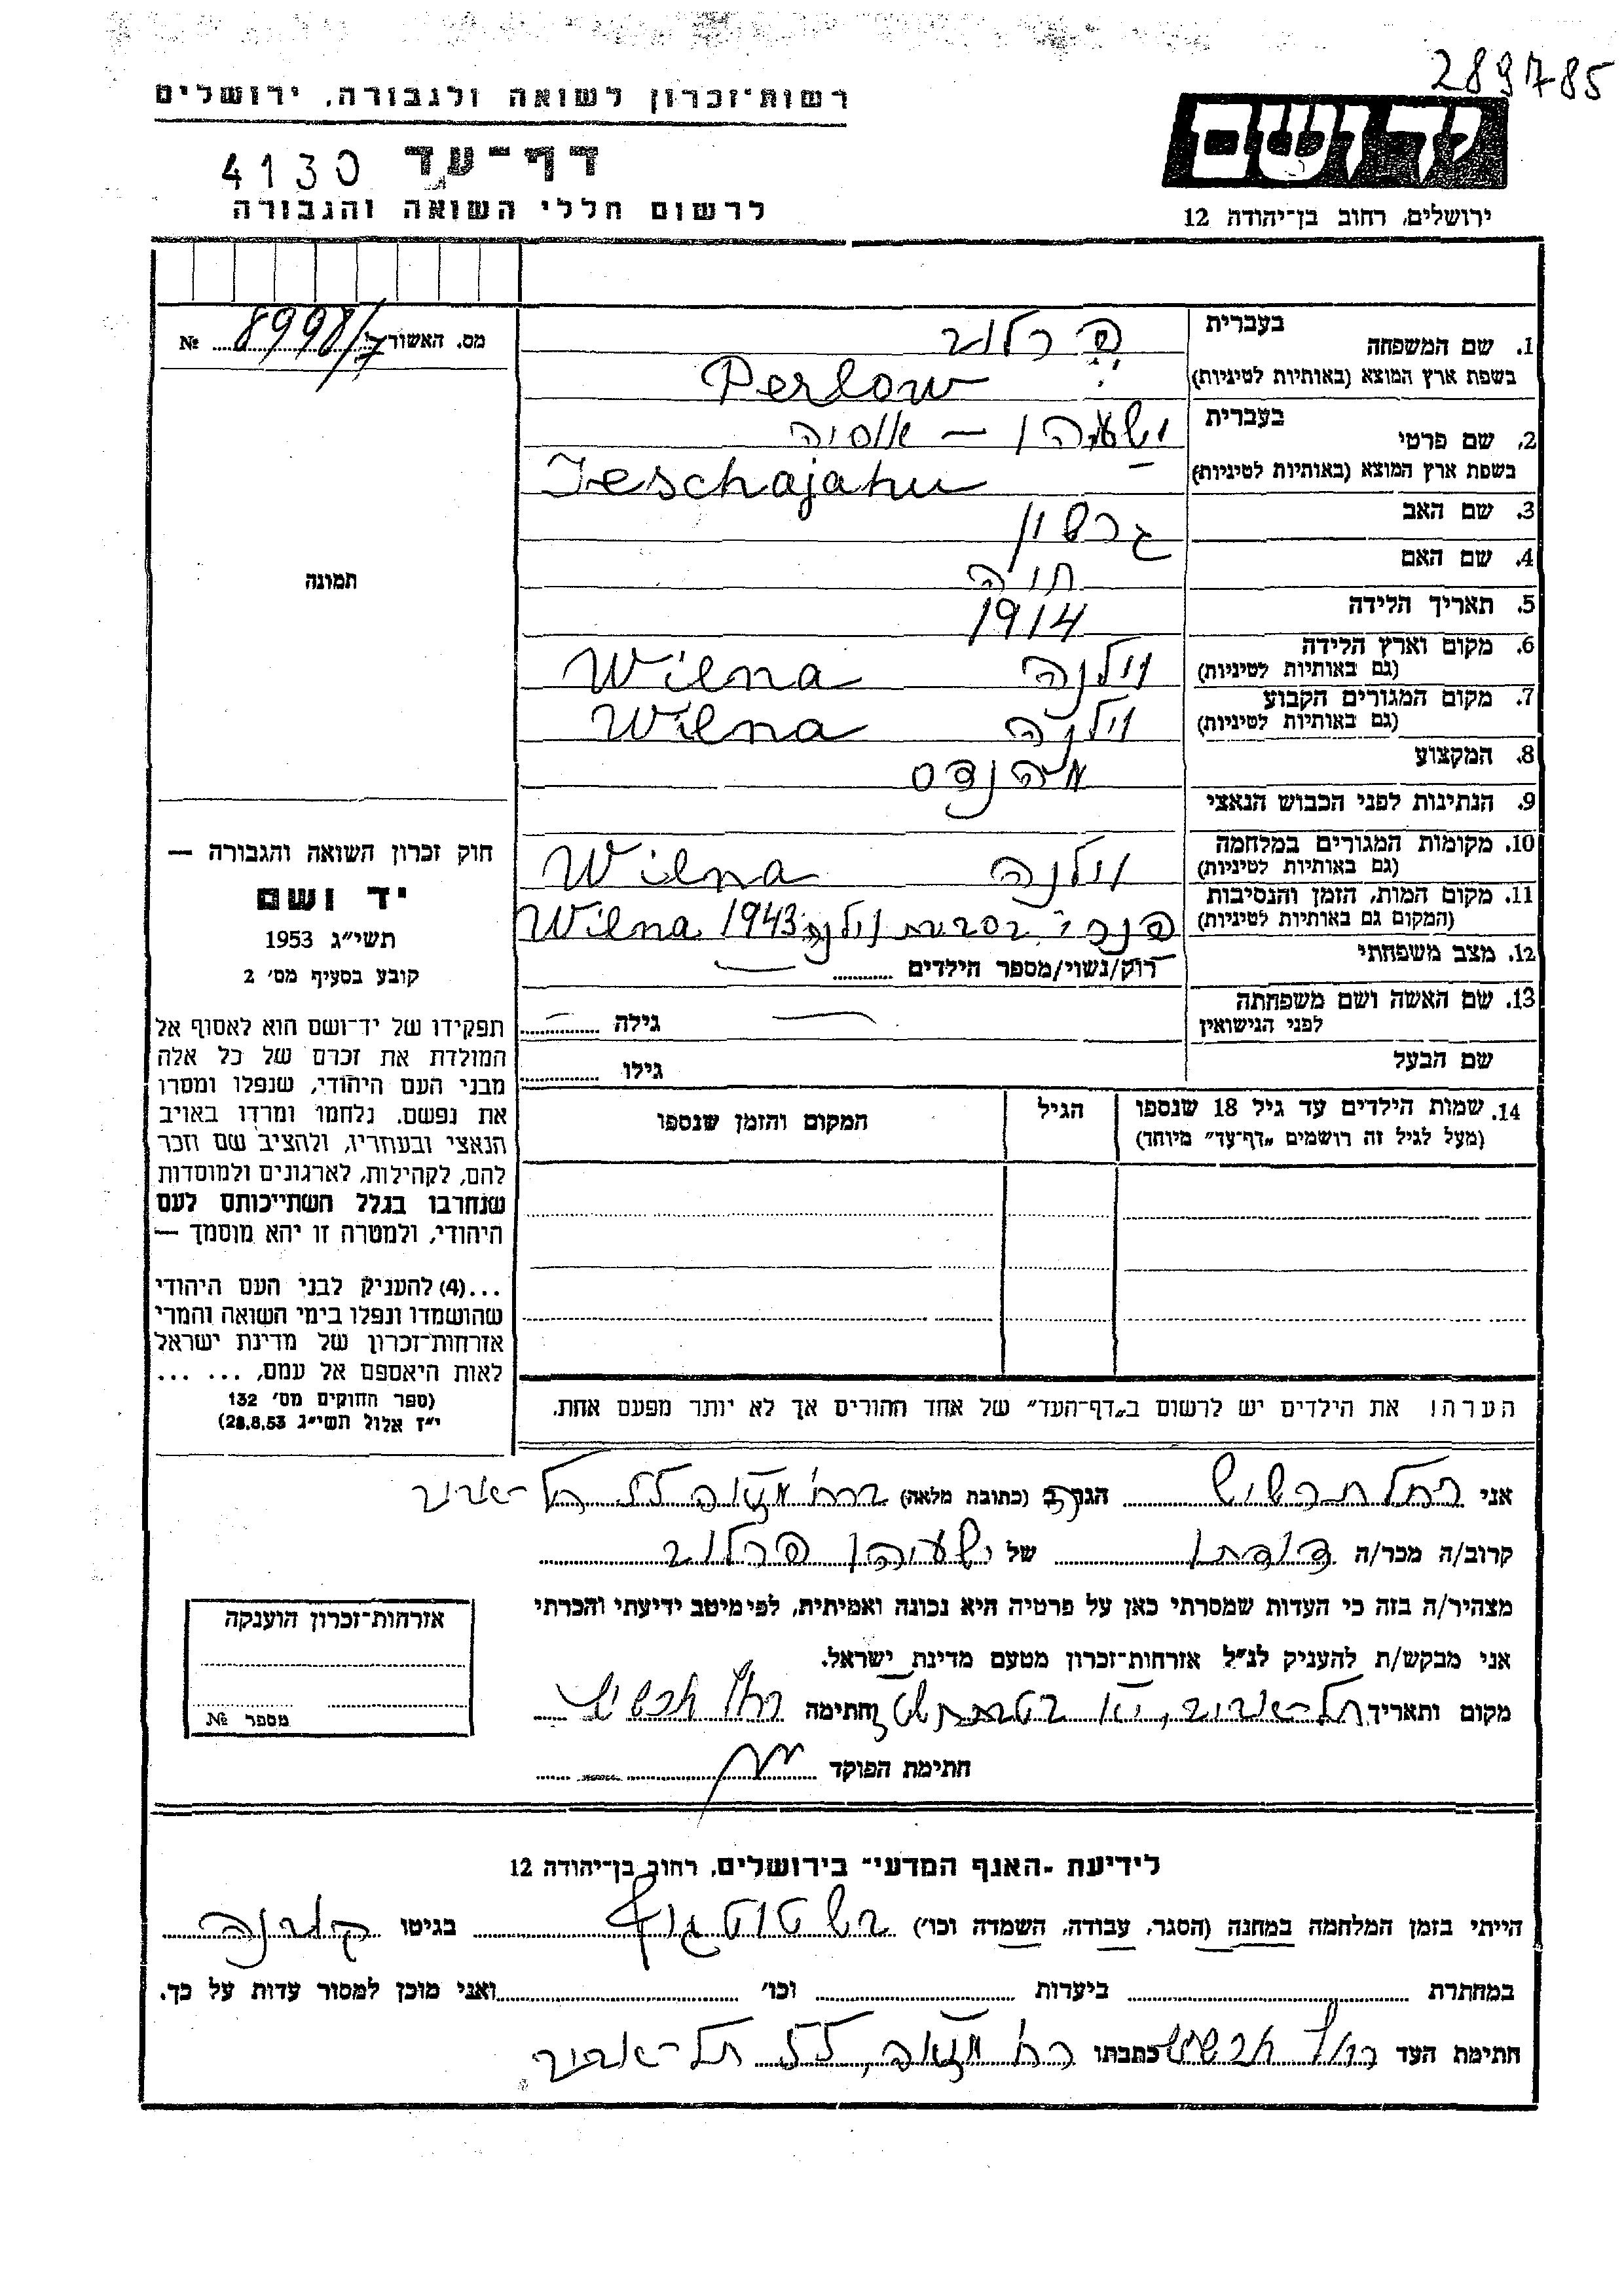 289785
רשות־זכרון לשואה ולגבורה, ירושלים
ידושם
דף־עד 4130
לרשום חללי השואה והגבורה
ירושלים, רחוב בן־יהודה 12
מס. האשור 8998/7 №
1. שם המשפחה בעברית פרלוב
בשפת ארץ המוצא (באותיות לטיניות) Perlow
2. שם פרטי בעברית ישעיהו – אוסיה
בשפת ארץ המוצא (באותיות לטיניות) Jeschajahu
3. שם האב גרשון
4. שם האם חוה
5. תאריך הלידה 1914
6. מקום וארץ הלידה (גם באותיות לטיניות) וילנה Wilna
7. מקום המגורים הקבוע (גם באותיות לטיניות) וילנה Wilna
8. המקצוע מהנדס
9. הנתינות לפני הכבוש הנאצי
10. מקומות המגורים במלחמה (גם באותיות לטיניות) וילנה Wilna
11. מקום המות, הזמן והנסיבות (המקום גם באותיות לטיניות) פונרי בסביבת וילנה 1943 Wilna
12. מצב משפחתי רוק/נשוי/מספר הילדים —
13. שם האשה ושם משפחתה לפני הנישואין — גילה —
שם הבעל גילו
14. שמות הילדים עד גיל 18 שנספו (מעל לגיל זה רושמים „דף־עד” מיוחד) הגיל המקום והזמן שנספו
הערה! את הילדים יש לרשום ב„דף־העד” של אחד ההורים אך לא יותר מפעם אחת.
תמונה
חוק זכרון השואה והגבורה —
יד ושם
תשי״ג 1953
קובע בסעיף מס׳ 2
תפקידו של יד־ושם הוא לאסוף אל
המולדת את זכרם של כל אלה
מבני העם היהודי, שנפלו ומסרו
את נפשם, נלחמו ומרדו באויב
הנאצי ובעוזריו, ולהציב שם וזכר
להם, לקהילות, לארגונים ולמוסדות
שנחרבו בגלל השתייכותם לעם
היהודי, ולמטרה זו יהא מוסמך —
...(4) להעניק לבני העם היהודי
שהושמדו ונפלו בימי השואה והמרי
אזרחות־זכרון של מדינת ישראל
לאות היאספם אל עמם, ... ...
(ספר החוקים מס׳ 132
י״ז אלול תשי״ג 28.8.53)
אני רחל תרשיש הגר/ה ב (כתובת מלאה) תל־אביב
קרוב/ה מכר/ה דודתו של ישעיהו פרלוב
מצהיר/ה בזה כי העדות שמסרתי כאן על פרטיה היא נכונה ואמיתית, לפי מיטב ידיעתי והכרתי
אני מבקש/ת להעניק לנ״ל אזרחות־זכרון מטעם מדינת ישראל.
מקום ותאריך תל־אביב, חתימה רחל תרשיש
חתימת הפוקד
אזרחות־זכרון הוענקה
מספר №
לידיעת „האגף המדעי” בירושלים, רחוב בן־יהודה 12
הייתי בזמן המלחמה במחנה (הסגר, עבודה, השמדה וכו׳) בשטוטגוף בגיטו קובנה
במחתרת ביערות וכו׳ ואני מוכן למסור עדות על כך.
חתימת העד רחל תרשיש כתבתו תל־אביב